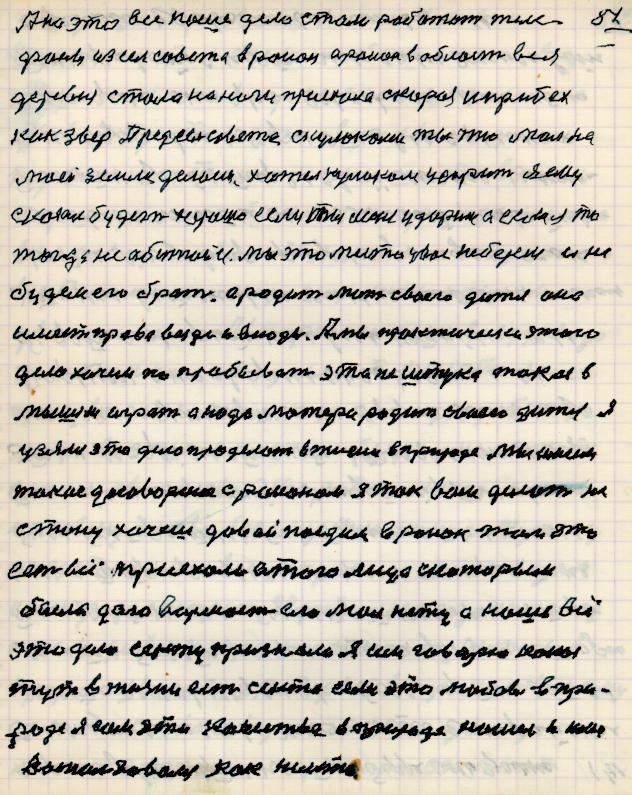 А на это все наше дело стали работат теле 81
фоны из сельсовета в район а район в област вся
деревня стала на ноги приехала скорая и прибех
как звер Председсовета с кулоками ты что мол на
моей земли делаеш, хотел кулоком ударит я ему
сказал будет хорошо если ты мене удариш а если я то
тогда не обитной. мы это место уже не береш и не
будем его брат. а родит мат своего дитя она
имеет права везде и всюды. А мы практически этого
дело хочем по пробыват эта не штука такое в
мышки играт а нада матери родит своего дитя Я
узяли это дело проделат в жизни в природе мы имели
такие договорено с районом я так вам делат не
стану хочеш давай поедим в район там это
ест всё приехали а того лица с которым
была дело его мол нету а наше всё
это дело секту признали Я им говорю какая
тут в жизни ест секта если это любов в при-
роде я сам эти качества в природе нашел и ими
как нихто